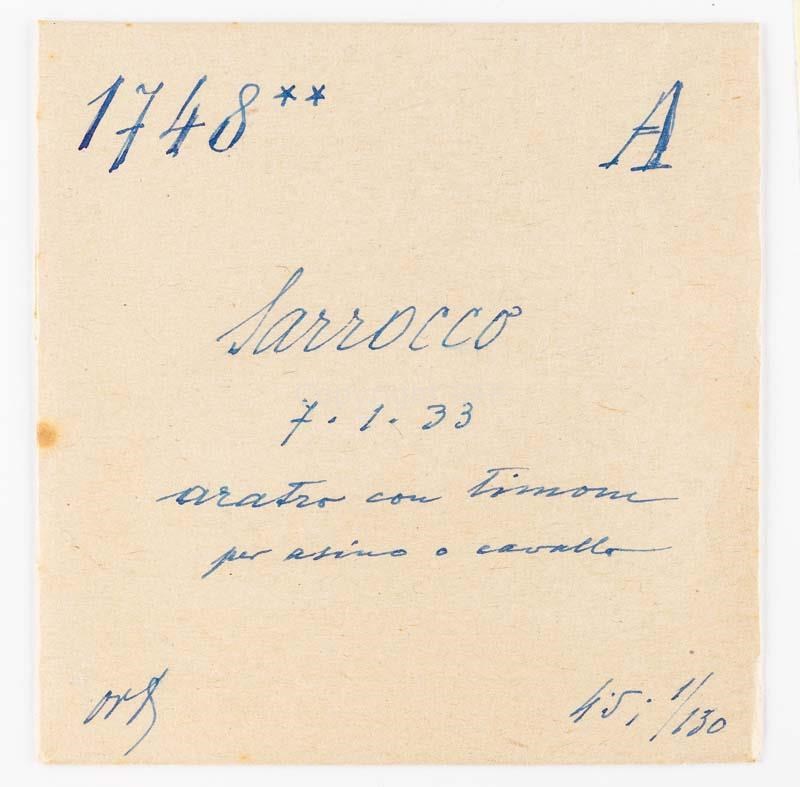 1748** A
Sarrocco
7.1.33
aratro con timone
per asino o cavallo
45; 1/130